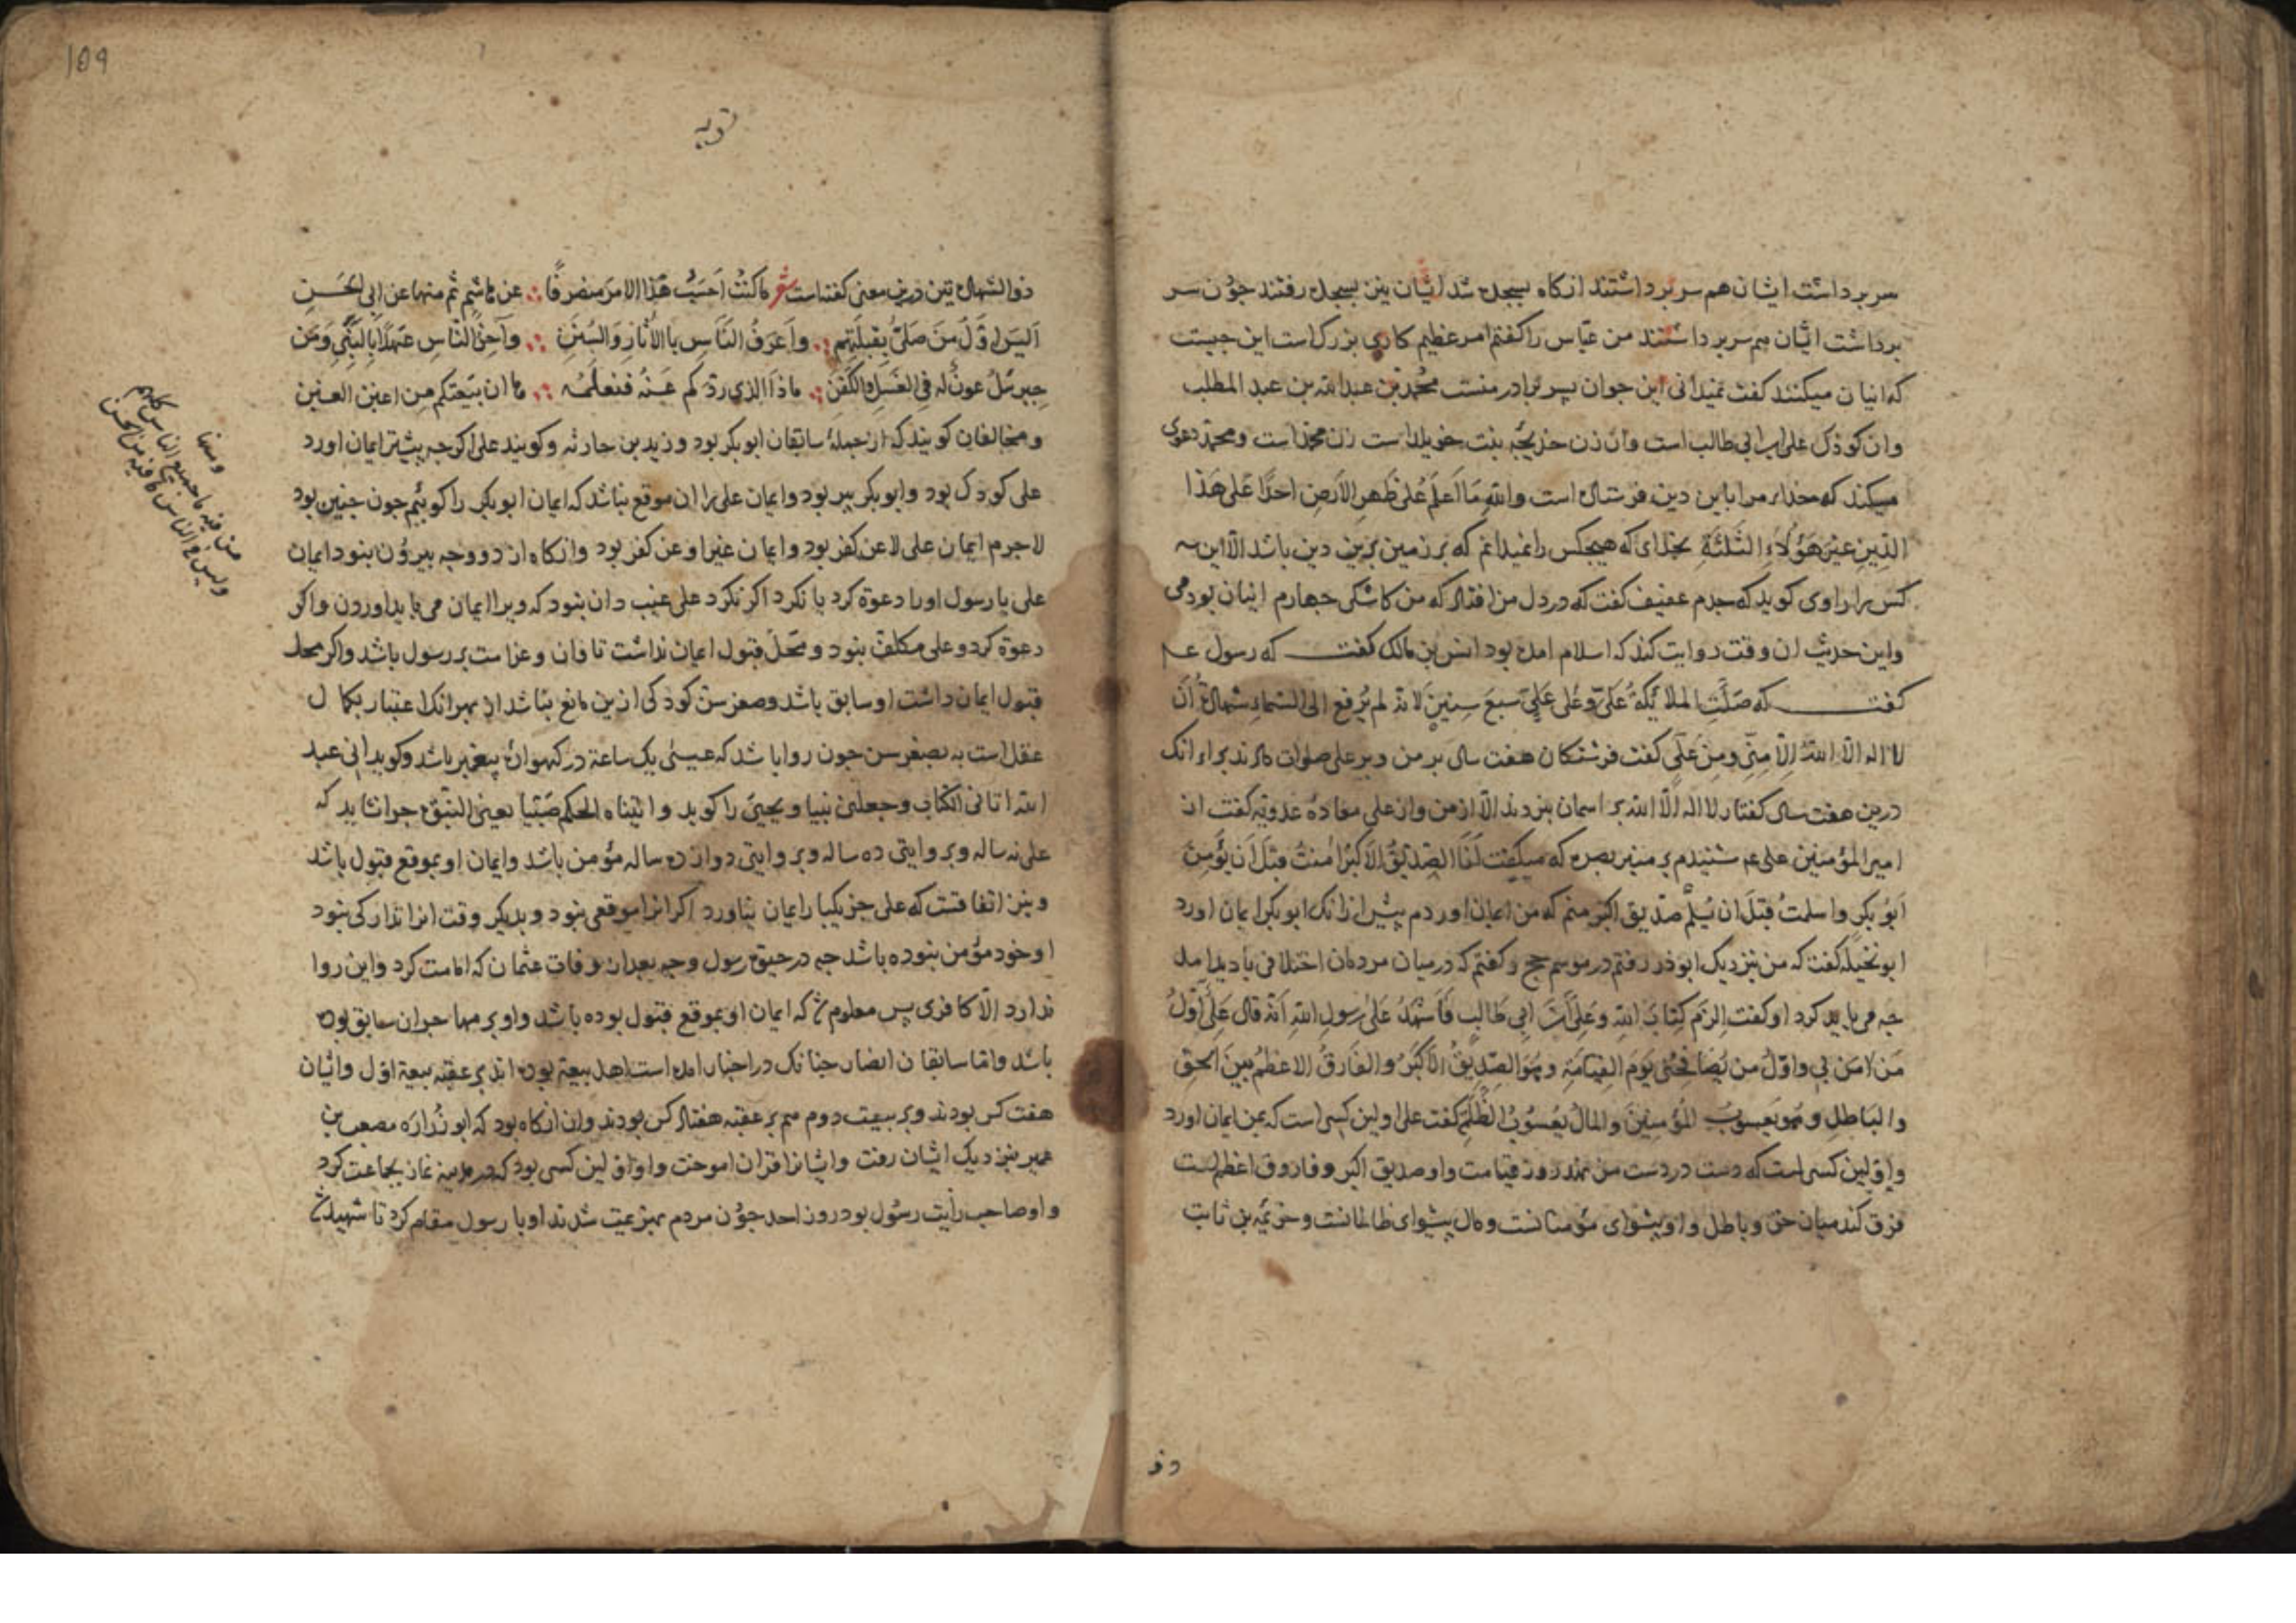 سر برداشت ایشان هم سر برداشتند انکاه بسجده شد ایشان نیز بسجده رفتند جون سر
برداشت ایشان هم سر برداشتند من عباس را کفتم امر عظیم کاری بزرک است این جیست
که اینان میکنند کفت نمیدانی این جوان پسر برادر منست محمد بن عبد الله بن عبد المطلب
وان کوذک علی ابن ابی طالب است وان زن خدیجه بنت خویلد است زن محمد است ومحمد دعوی
میکند که خدا مرا باین دین فرستاده است والله ما اعلم علی ظهر الارض احدا علی هذا
الدین غیر هؤلاء الثلثة بخدای که هیچکس را نمیدانم که بر زمین برین دین باشد الا این سه
کس را راوی کوید که جدم عفیف کفت که در دل من افتاد که من کاشکی جهارم اینان بودمی
واین حدیث ان وقت روایت کند که اسلام امده بود انس بن مالک کفت که رسول عم
کفت که صلت الملائکة علی وعلی علی سبع سنین لانه لم یرفع الی السماء شهادة ان
لا اله الا الله الا منی ومن علی کفت فرشتکان هفت سال بر من وبر علی صلوات دادند براء انک
درین هفت سال کفتار لا اله الا الله بر اسمان نبردند الا از من واز علی معاده عدویه کفت از
امیر المؤمنین علی عم شنیدم بر منبر بصره که میکفت انا الصدیق الاکبر امنت قبل ان یؤمن
ابو بکر واسلمت قبل ان یسلم صدیق اکبر منم که من ایمان اوردم پیش ازانک ابو بکر ایمان اورد
ابو نخیله کفت که من نزدیک ابوذر رفتم در موسم حج وکفتم که در میان مردمان اختلافی بادید امد
جه می باید کرد او کفت الزم کتاب الله وعلی بن ابی طالب فاشهد علی رسول الله انه قال علی اول
من امن بی واول من یصافحنی یوم القیامة وهو الصدیق الاکبر والفارق الاعظم بین الحق
والباطل وهو یعسوب المؤمنین والمال یعسوب الظلمة کفت علی اولین کسی است که بمن ایمان اورد
واولین کسی است که دست در دست من نهد روز قیامت واو صدیق اکبر وفاروق اعظم است
فرق کند میان حق وباطل واو پیشوای مؤمنانست ومال پیشوای ظالمانست وخزیمه بن ثابت
ذو
109
توبه
ذو الشهادتین درین معنی کفته است شعر ما کنت احسب هذا الامر منصرفا عن هاشم ثم منها عن ابی الحسن
الیس اول من صلی بقبلتهم واعرف الناس بالاثار والسنن واخر الناس عهدا بالنبی ومن
جبرئل عون له فی الغسل والکفن ماذا الذی ردکم عنه فنعلمه ها ان بیعتکم من اغبن الغبن
ومخالفان کویند که از جمله سابقان ابو بکر بود وزید بن حارثه وکویند علی اکرجه پیشتر ایمان اورد
علی کودک بود وابو بکر پیر بود وایمان علی را ان موقع نباشد که ایمان ابو بکر را کوئیم جون جنین بود
لا جرم ایمان علی لا عن کفر بود وایمان غیر او عن کفر بود وانکاه از دو وجه بیرون نبود ایمان
علی یا رسول اورا دعوة کرد یا نکرد اکر نکرد علی غیب دان نبود که ویرا ایمان می باید اوردن واکر
دعوة کرد وعلی مکلف نبود ومحل قبول ایمان نداشت تاوان وغرامت بر رسول باشد واکر محل
قبول ایمان داشت او سابق باشد وصغر سن کودکی ازین مانع نباشد از بهر انک اعتبار بکمال
عقل است نه بصغر سن جون روا باشد که عیسی یک ساعة در کهواره پیغمبر باشد وکوید انی عبد
الله اتانی الکتاب وجعلنی نبیا ویحیی را کوید واتیناه الحکم صبیا یعنی النبوة جرا نشاید که
علی نه ساله وبروایتی ده ساله وبروایتی دوازده ساله مؤمن باشد وایمان او بموقع قبول باشد
ونیز اتفاقست که علی جز یکبار ایمان نیاورد اکر انرا موقعی نبود وبدیکر وقت انرا تدارکی نبود
او خود مؤمن نبوده باشد جه در حیوة رسول وجه بعد از وفات عثمان که امامت کرد واین روا
ندارد الا کافری پس معلوم شد که ایمان او بموقع قبول بوده باشد واو بر مهاجران سابق بوده
باشد واما سابقان انصار جنانک در اخبار امده است اهل بیعة بوده اند بر عقبه بیعة اول وایشان
هفت کس بودند وبر بیعت دوم هم بر عقبه هفتاد کس بودند وان انکاه بود که ابو زراره مصعب بن
عمیر بنزدیک ایشان رفت وایشانرا قران اموخت واو اولین کسی بود که در مدینه نماز بجماعت کرد
واو صاحب رایت رسول بود روز احد جون مردم بهزیمت شدند او با رسول مقام کرد تا شهید شد
من فیه ما جمیع الناس کلهم
ولیس فی الناس ما فیه من الحسن